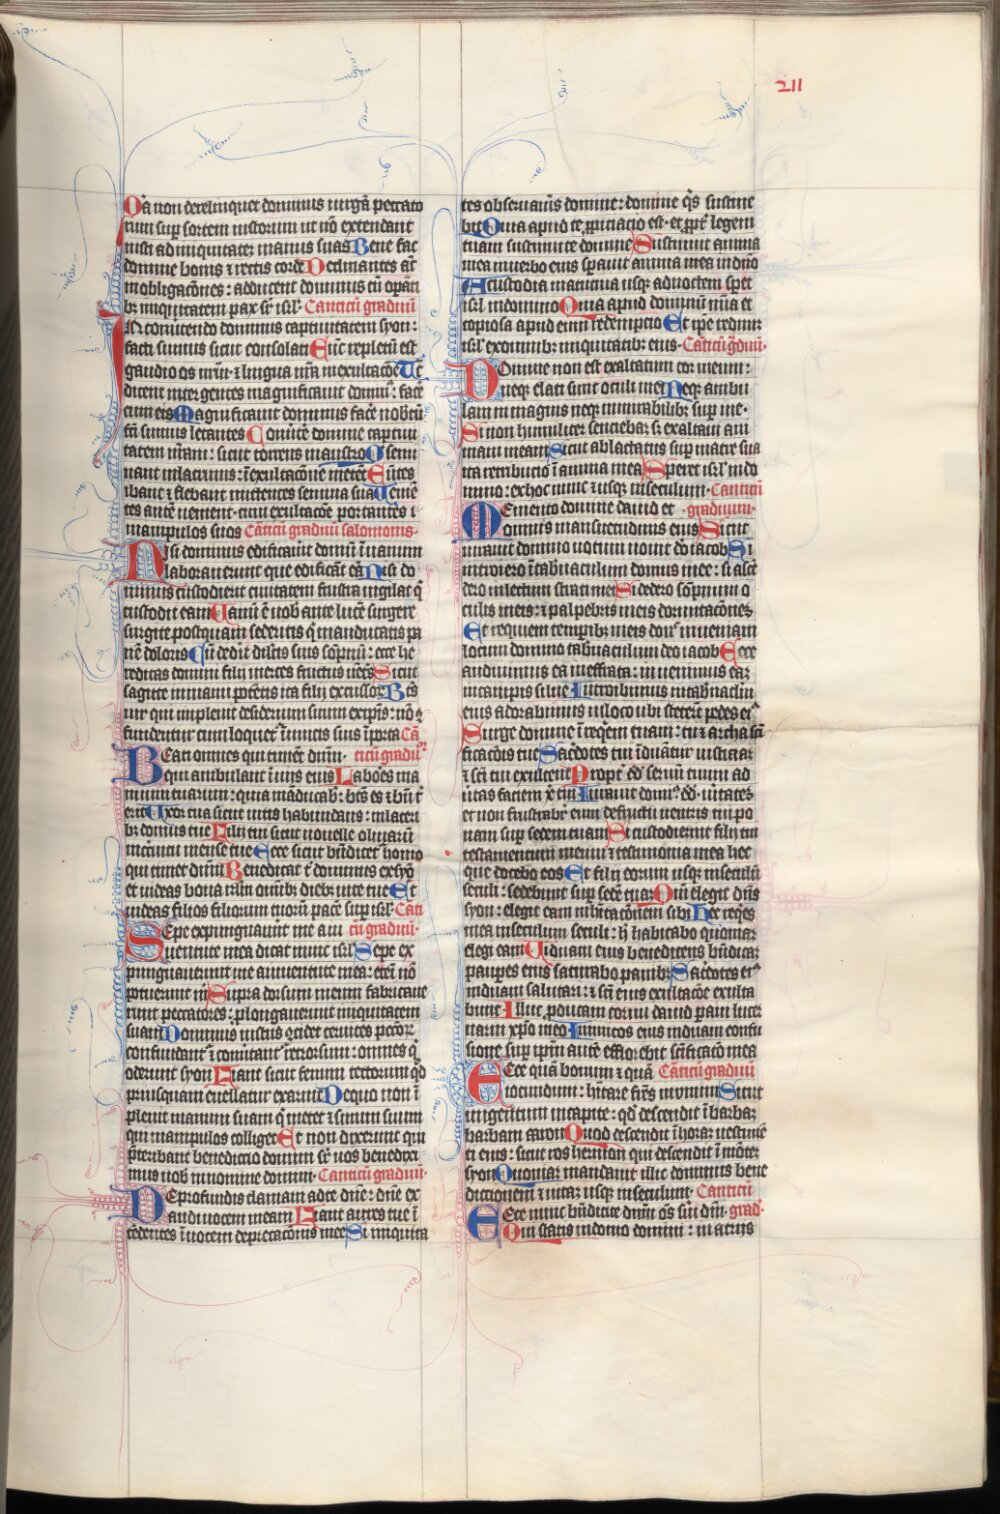 211
Qa non derelinquet dominus uirgā peccato
rum sup sortem iustorum ut nō extendant
iusti ad iniquitatez manus suas Bene fac
domine bonis ⁊ rectis corde Declinantes aūt
in obligacōnes : adducent dominus cū opāti
bꝫ iniquitatem pax sr̄ isrl̄ · Canticū graduū
IN conuertendo dominus captiuitatem syon :
facti sumus sicut consolati Tūc repletū est
gaudio os nr̄m · ⁊ lingua nr̄a in exultacōe Tūc
dicent inter gentes magnificauit dominꝰ : face
cum eis Magnificauit dominus facē nobiscū
fcī sumus letantes Conūte domine captiui
tatem nr̄am : sicut torrens in austro Qi semi
nant in lacrimis : ī exultacōne metēt Eūtes
ibant ⁊ flebant mittentes semina sua Ueniē
tes autē uenient · cum exultacōe portantes
manipulos suos Canticū graduū salomonis ·
NIsi dominus edificauit domū ī uanum
laborauerunt qui edificāt eā Nisi do
minus custodierit ciuitatem frustra uigilat q̄
custodit eam Uanū ē uob ante lucē surgere
surgite postquam sederitis q̄ manducatis pa
nē doloris Cū dedit dilcīs suis sōpnū : ecce he
reditas domini filij merces fructus uētris Sicut
sagitte in manu potētis ita filij excussoꝝ Btūs
uir qui impleuit desiderium suum ex ipīs : nō ꝯ
fundentur cum loquet̄ inimicis suis ī porta Cā
BEati omnes qui timēt dnm̄ · ticū graduū
qui ambulant ī uijs eius Labōes ma
nuum tuarum : quia māducabꝫ : btūs es ⁊ bn̄ t̄
erit Uxor tua sicut uitis habundans : in lateri
bꝫ domus tue Filij tui sicut nouelle oliuarū
in circuitu mense tue Ecce sicut bn̄dicet̄ homo
qui timet dnm̄ Benedicat t̄ dominus ex syō
et uideas bona irlm̄ omībꝫ diebꝫ uite tue Et
uideas filios filiorum tuorū pacē sup isrl̄ · Cāti
SEpe expugnauerūt me a iuu cū graduū ·
uentute mea dicat nunc isrl̄ Sepe ex
pugnauerunt me a iuuentute mea : etēi nō
potuerunt m̄ Supra dorsum meum fabricaue
runt peccatores : plongauerunt iniquitatem
suam Dominus iustus ꝯcidet ceruices pctōrꝫ
confundant̄ ⁊ conūtant̄ retrorsum : omnes q̄
oderunt syon Fiant sicut fenum tectorum qd̄
priusquam euellatur exaruit De quo non ī
pleuit manum suam q̄ metet ⁊ sinum suum
qui manipulos colliget Et non dixerunt qui
p̄teribant benedictio domini sr̄ uos benedixi
mus uob in nomine domini · Canticū graduū ·
DE profundis clamaui ad te dn̄e : dn̄e ex
audi uocem meam Fiant aures tue ī
tēdentes ī uocem deprecacōnis mee Si iniquita
tes obseruaūis domine : domine q̄s sustine
bit Quia apud te ꝓpiciacio est · et ꝓpt̄ legem
tuam sustinui te domine Sustinuit anima
mea in uerbo eius sperauit anima mea in dnō
A custodia matutina usqꝫ ad noctem speret
isrl̄ in domino Quia apud dominū mīa et
copiosa apud eum redempcio Et ip̄e redimet
isrl̄ ex omnibꝫ iniquitatibꝫ eius · Canticū gduū ·
DOmine non est exaltatum cor meum :
neqꝫ elati sunt oculi mei Neqꝫ ambu
laui in magnis neqꝫ in mirabilibꝫ sup me ·
Si non humiliter sentiebaz sꝫ exaltaui ani
mam meam Sicut ablactatus sup matre sua
ita retribucio ī anima mea Speret isrl̄ in do
mino : ex hoc nunc ⁊ usqꝫ in seculum · Canticū
MEmento domine dauid et · graduum ·
omnis mansuetudinis eius Sicut
iurauit domino uotum uouit dō iacob Si
introiero ī tabnaculum domus mee : si ascē
dero in lectum strati mei Si dedero sōpnum o
culis meis : ⁊ palpebris meis dormitacōnez
Et requiem temporibꝫ meis donꝰ inueniam
locum domino tabnaculum deo iacob Ecce
audiuimus ea in effrata : inuenimus eaꝫ
in campis silue Introibimus in tabnaclm̄
eius adorabimus in loco ubi steterūt pedes eiꝰ
Surge domine ī reqiem tuam : tu ⁊ archa scī
ficacōis tue Sacēdotes tui īduātur iusticiaꝫ
⁊ scī tui exultent Propt̄ dd̄ seruū tuum ad
ūtas faciem x̄ tui Iurauit domꝰ dd̄ · uītatez
et non frustrabit̄ eum de fructu uentris tui po
nam sup sedem tuam Si custodierint filij tui
testamentum meum ⁊ testimonia mea hec
que docebo eos Et filij eorum usqꝫ in seculū
seculi : sedebunt sup sedē tuaꝫ Qm̄ elegit dn̄s
syon : elegit eam in habitacōnem sibi Hec reqes
mea in seculum seculi : h̄ habitabo quoniaꝫ
elegi eam Uiduam eius benedicens bn̄dicaꝫ
paupes eius saturabo panibꝫ Sacēdotes eiꝰ
induam salutari : ⁊ scī eius exultacōe exulta
bunt Illuc ꝓducam cornu dauid paui lucer
nam xp̄o meo Inimicos eius induam confu
sione sup ip̄m autē efflorebit scīficatio mea
ECce quā bonum ⁊ quā Canticū graduū
iocundum : hītare frēs in vnum Sicut
ungentum in capite : qd̄ descendit ī barbaꝫ
barbam aaron Quod descendit ī horaꝫ uestimē
ti eius : sicut ros hermon qui descendit ī mōtez
syon Quoniaꝫ mandauit illic dominus bene
dictionem ⁊ uitaꝫ usqꝫ in seculum · Canticū
ECce nunc bn̄dicite dnm̄ ōs sūi dn̄i · grad ·
Qui statis in domo domini : in atrijs